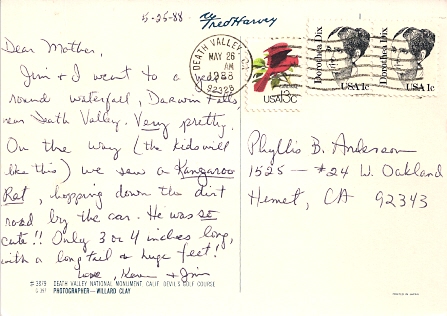 5-25-88
Fred Harvey
Dear Mother,
Jim & I went to a year
round waterfall, Darwin Falls
near Death Valley. Very pretty.
On the way (the kids will
like this) we saw a Kangaroo
Rat, hopping down the dirt
road by the car. He was so
cute!! Only 3 or 4 inches long,
with a long tail & huge feet!
Love, & Jim
DEATH VALLEY, CA
MAY 26
AM
1988
92328
USA 13c
Dorothea Dix
USA 1c
Dorothea Dix
USA 1c
Phyllis B. Anderson
1525 - #24 W. Oakland
Hemet, CA 92343
DEATH VALLEY NATIONAL MONUMENT, CALIF. DEVIL'S GOLF COURSE
PHOTOGRAPHER—WILLARD CLAY